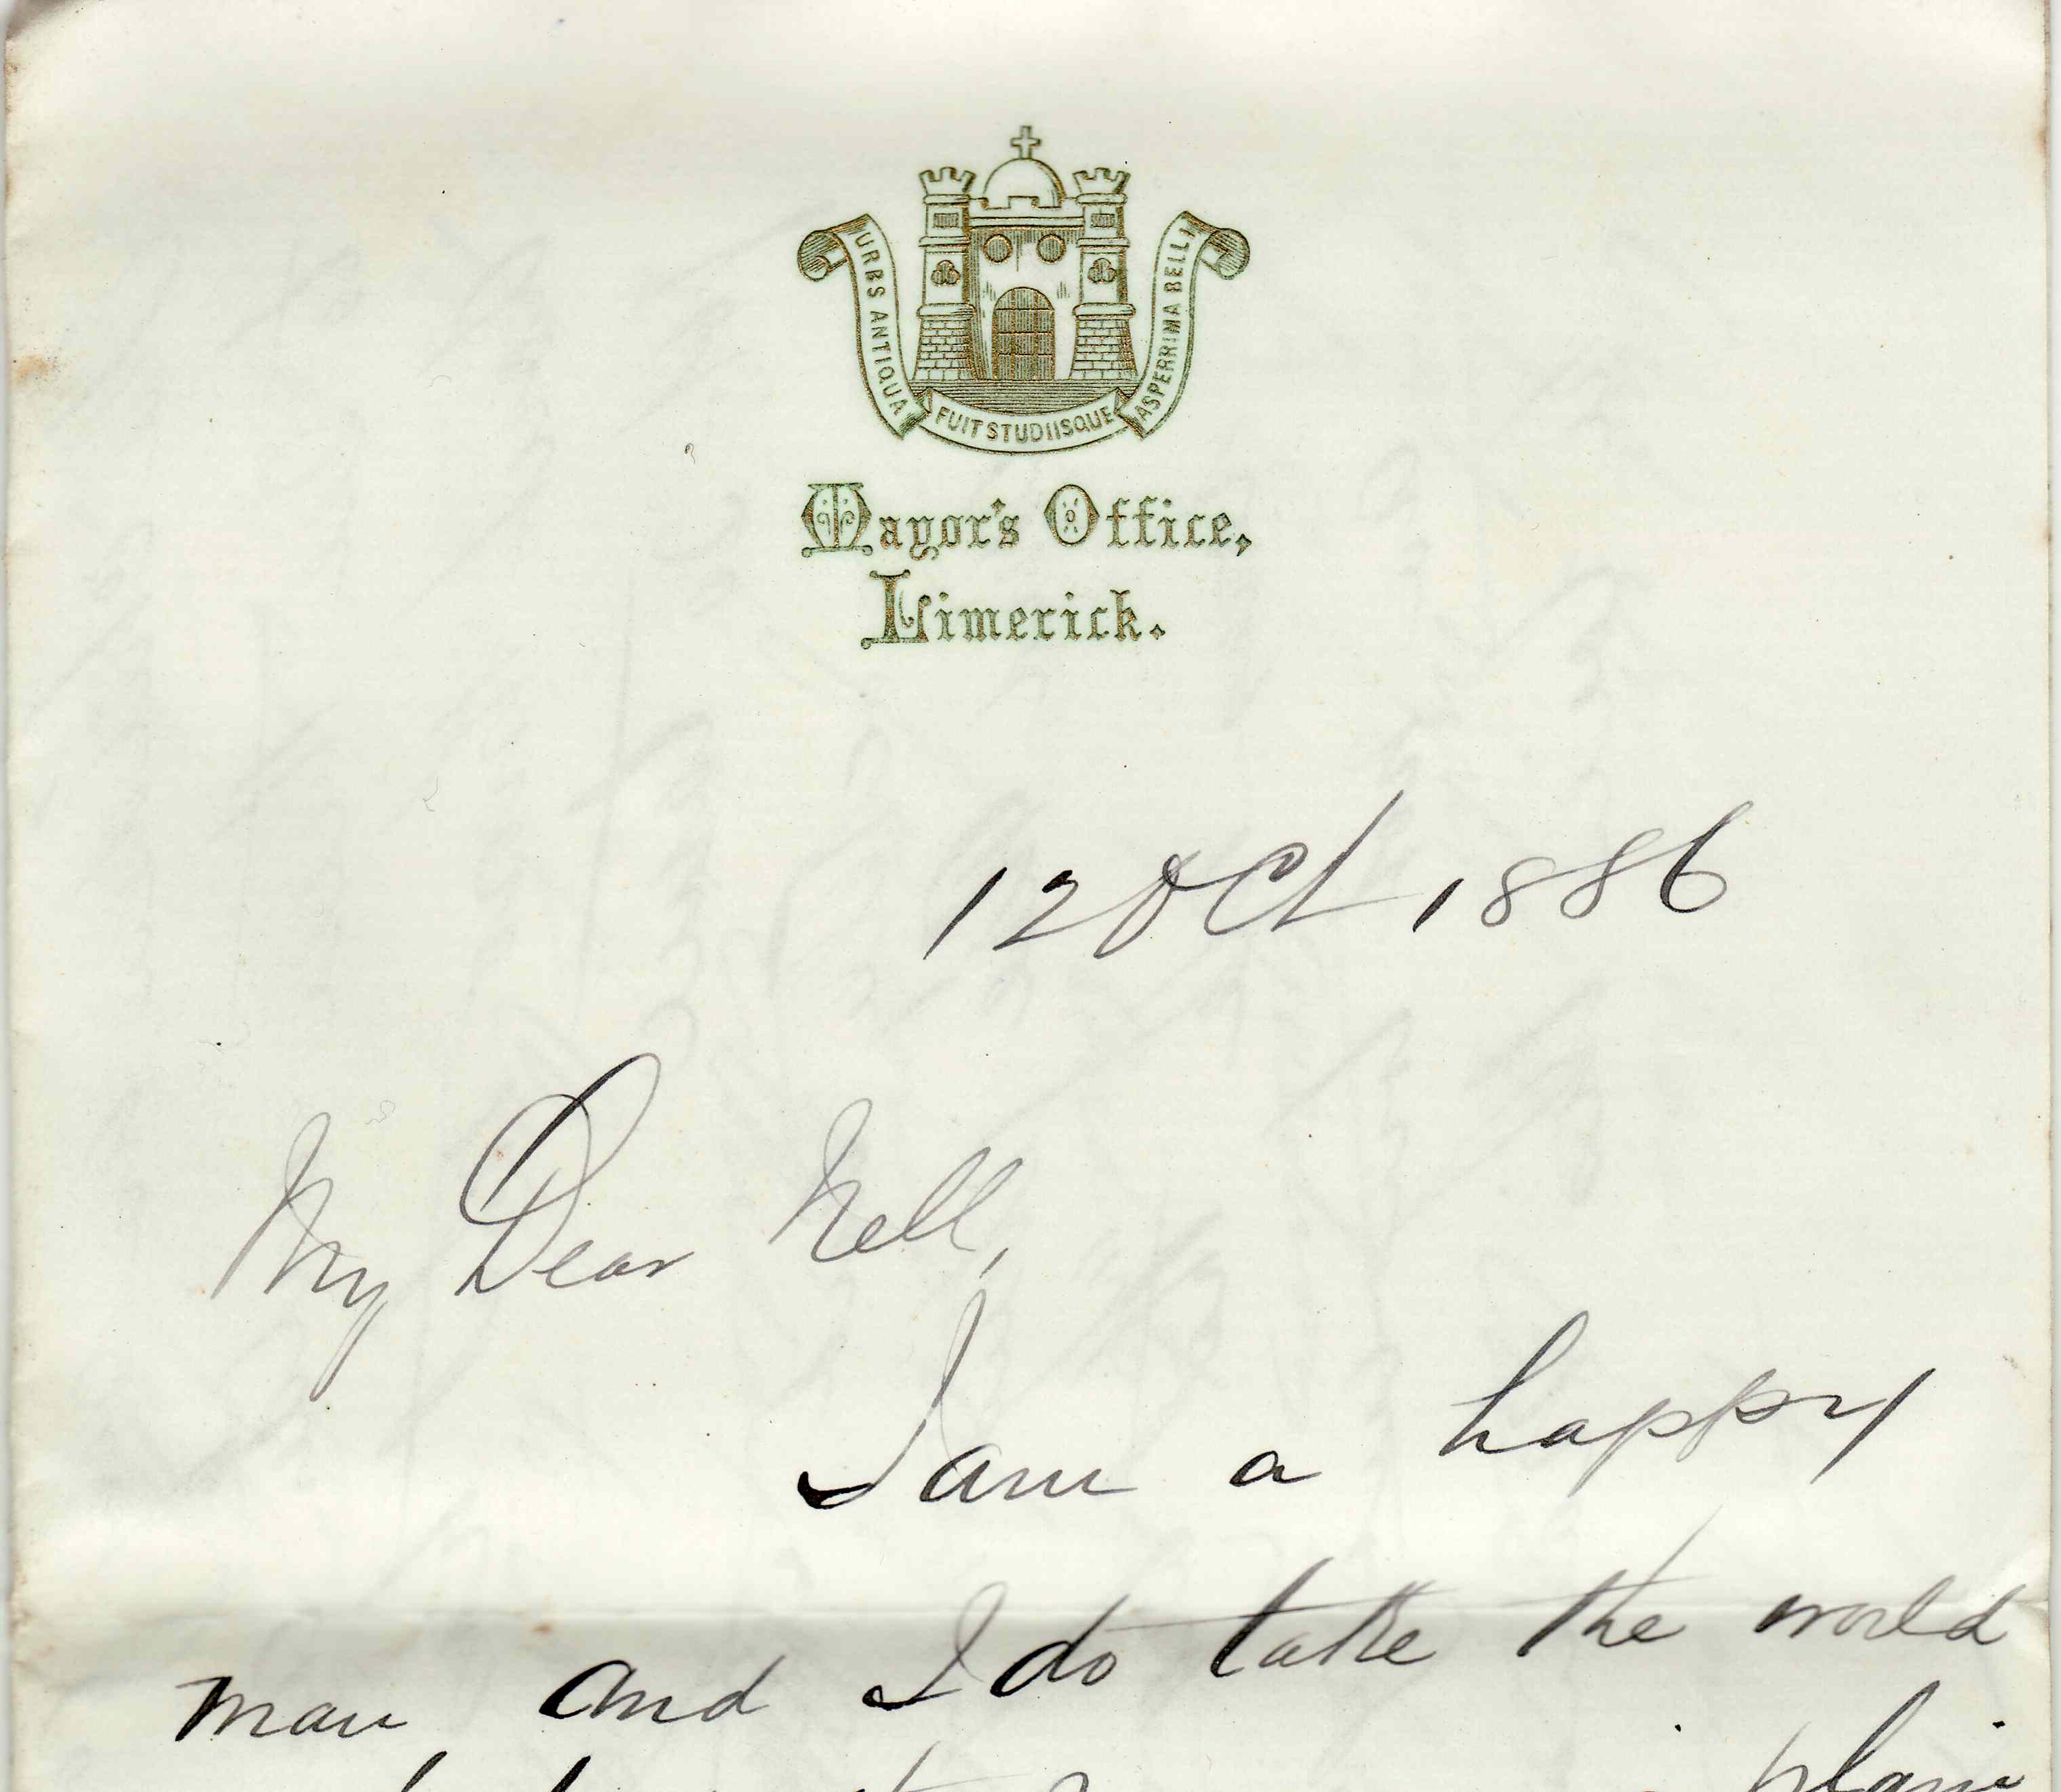 URBS ANTIQUA FUIT STUDIISQUE ASPERRIMA BELLI
Mayor's Office,
Limerick.
12 Oct 1886
My Dear Nell,
I am a happy
man and I do take the world
plain